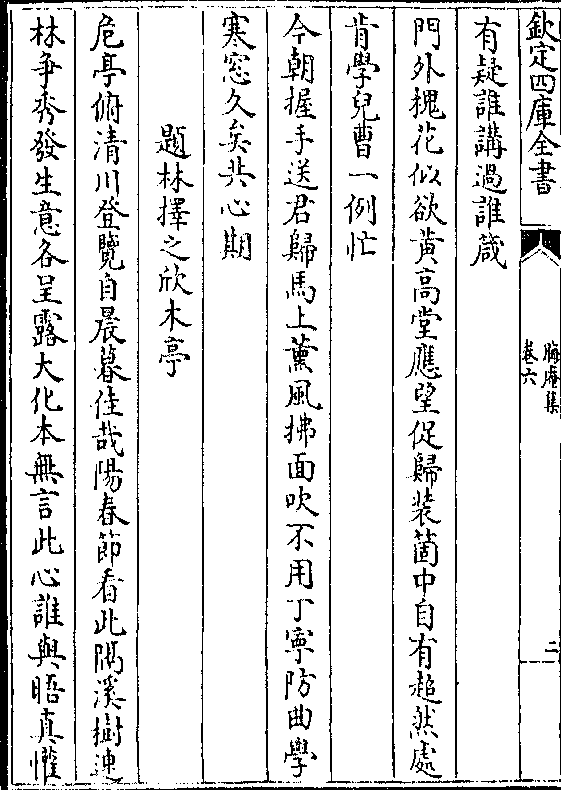 欽定四庫全書
晦庵集
卷六
二
有疑誰講過誰箴
門外槐花似欲黄高堂應望促歸装箇中自有超然處
肯學兒曹一例忙
今朝握手送君歸馬上薰風拂面吹不用丁寧防曲學
寒窓久矣共心期
題林擇之欣木亭
危亭俯清川登覽自晨暮佳哉陽春節看此隔溪樹連
林争秀發生意各呈露大化本無言此心誰與晤真懽